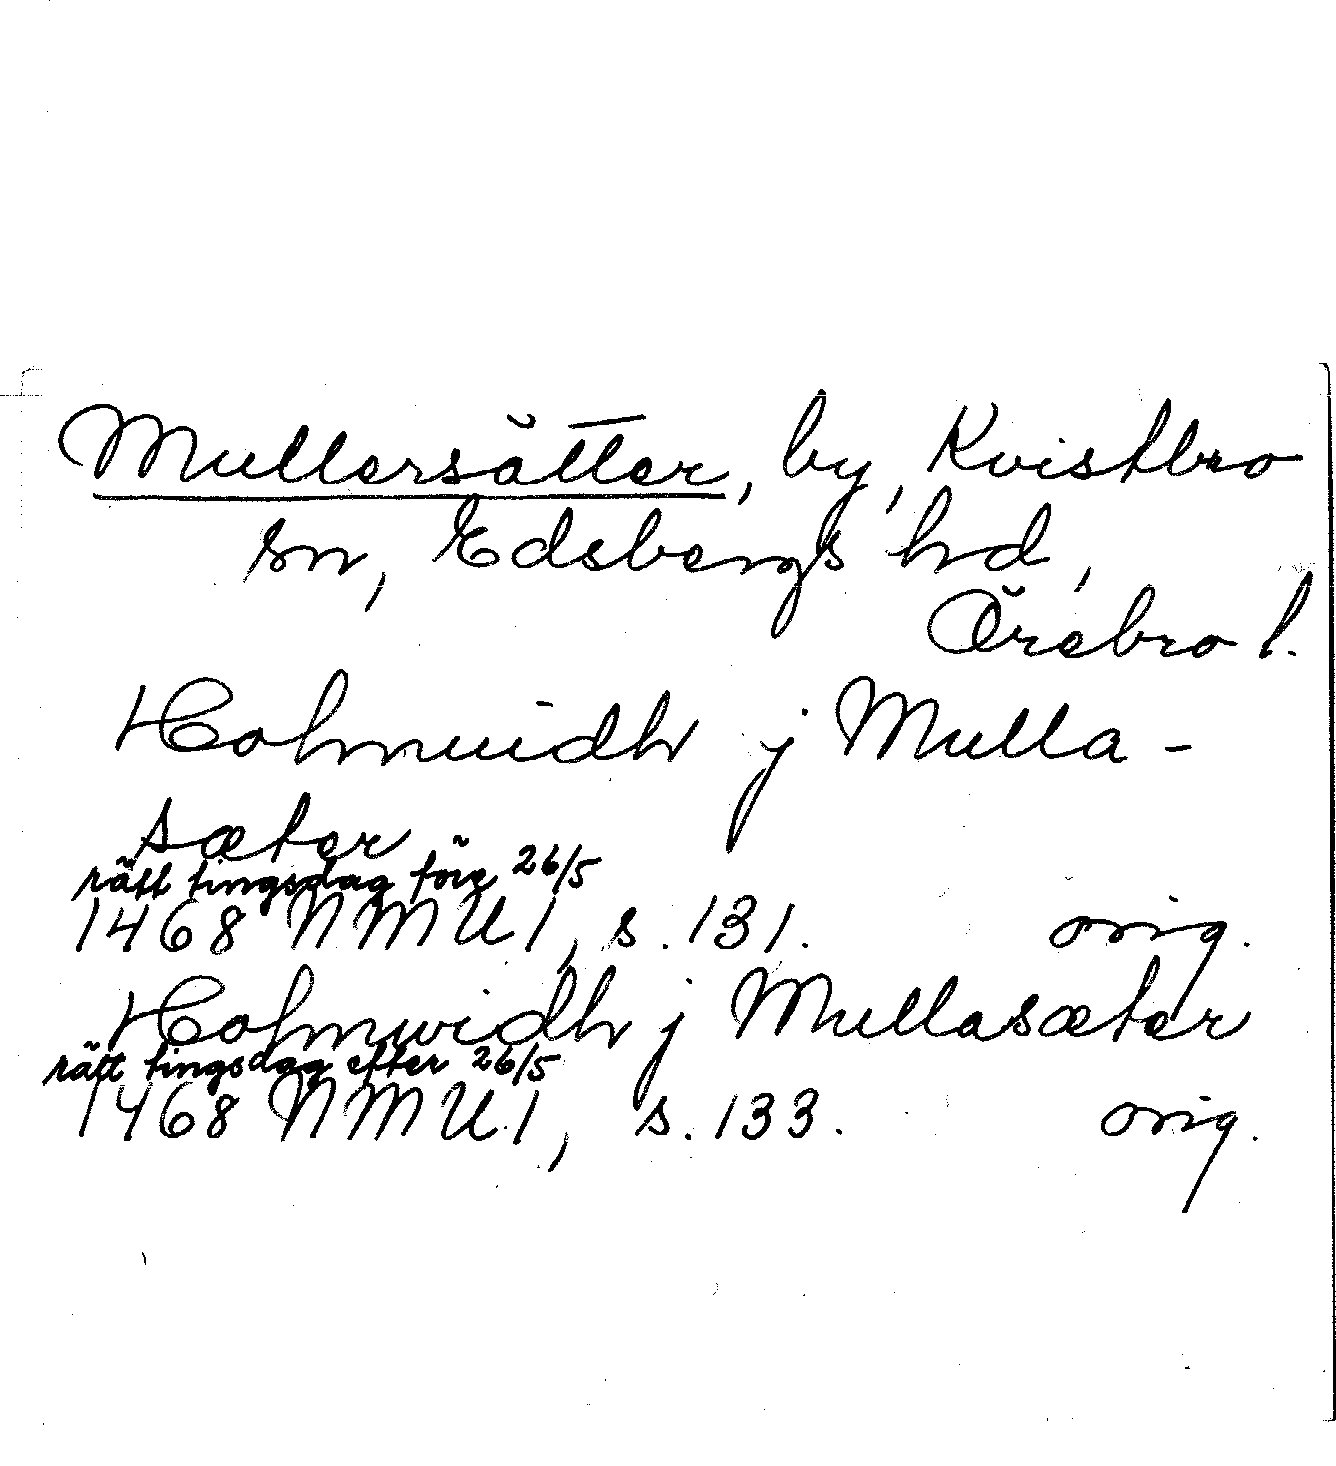 Mullersätter, by, Kvistbro
sn, Edsbergs hd,
Örebro l.
Holmuidh j Mulla-
sæter
rätt tingsdag före 26/5
1468 NMU 1, s. 131. orig.
Holmwidh j Mullasæter
rätt tingsdag efter 26/5
1468 NMU 1, s. 133. orig.